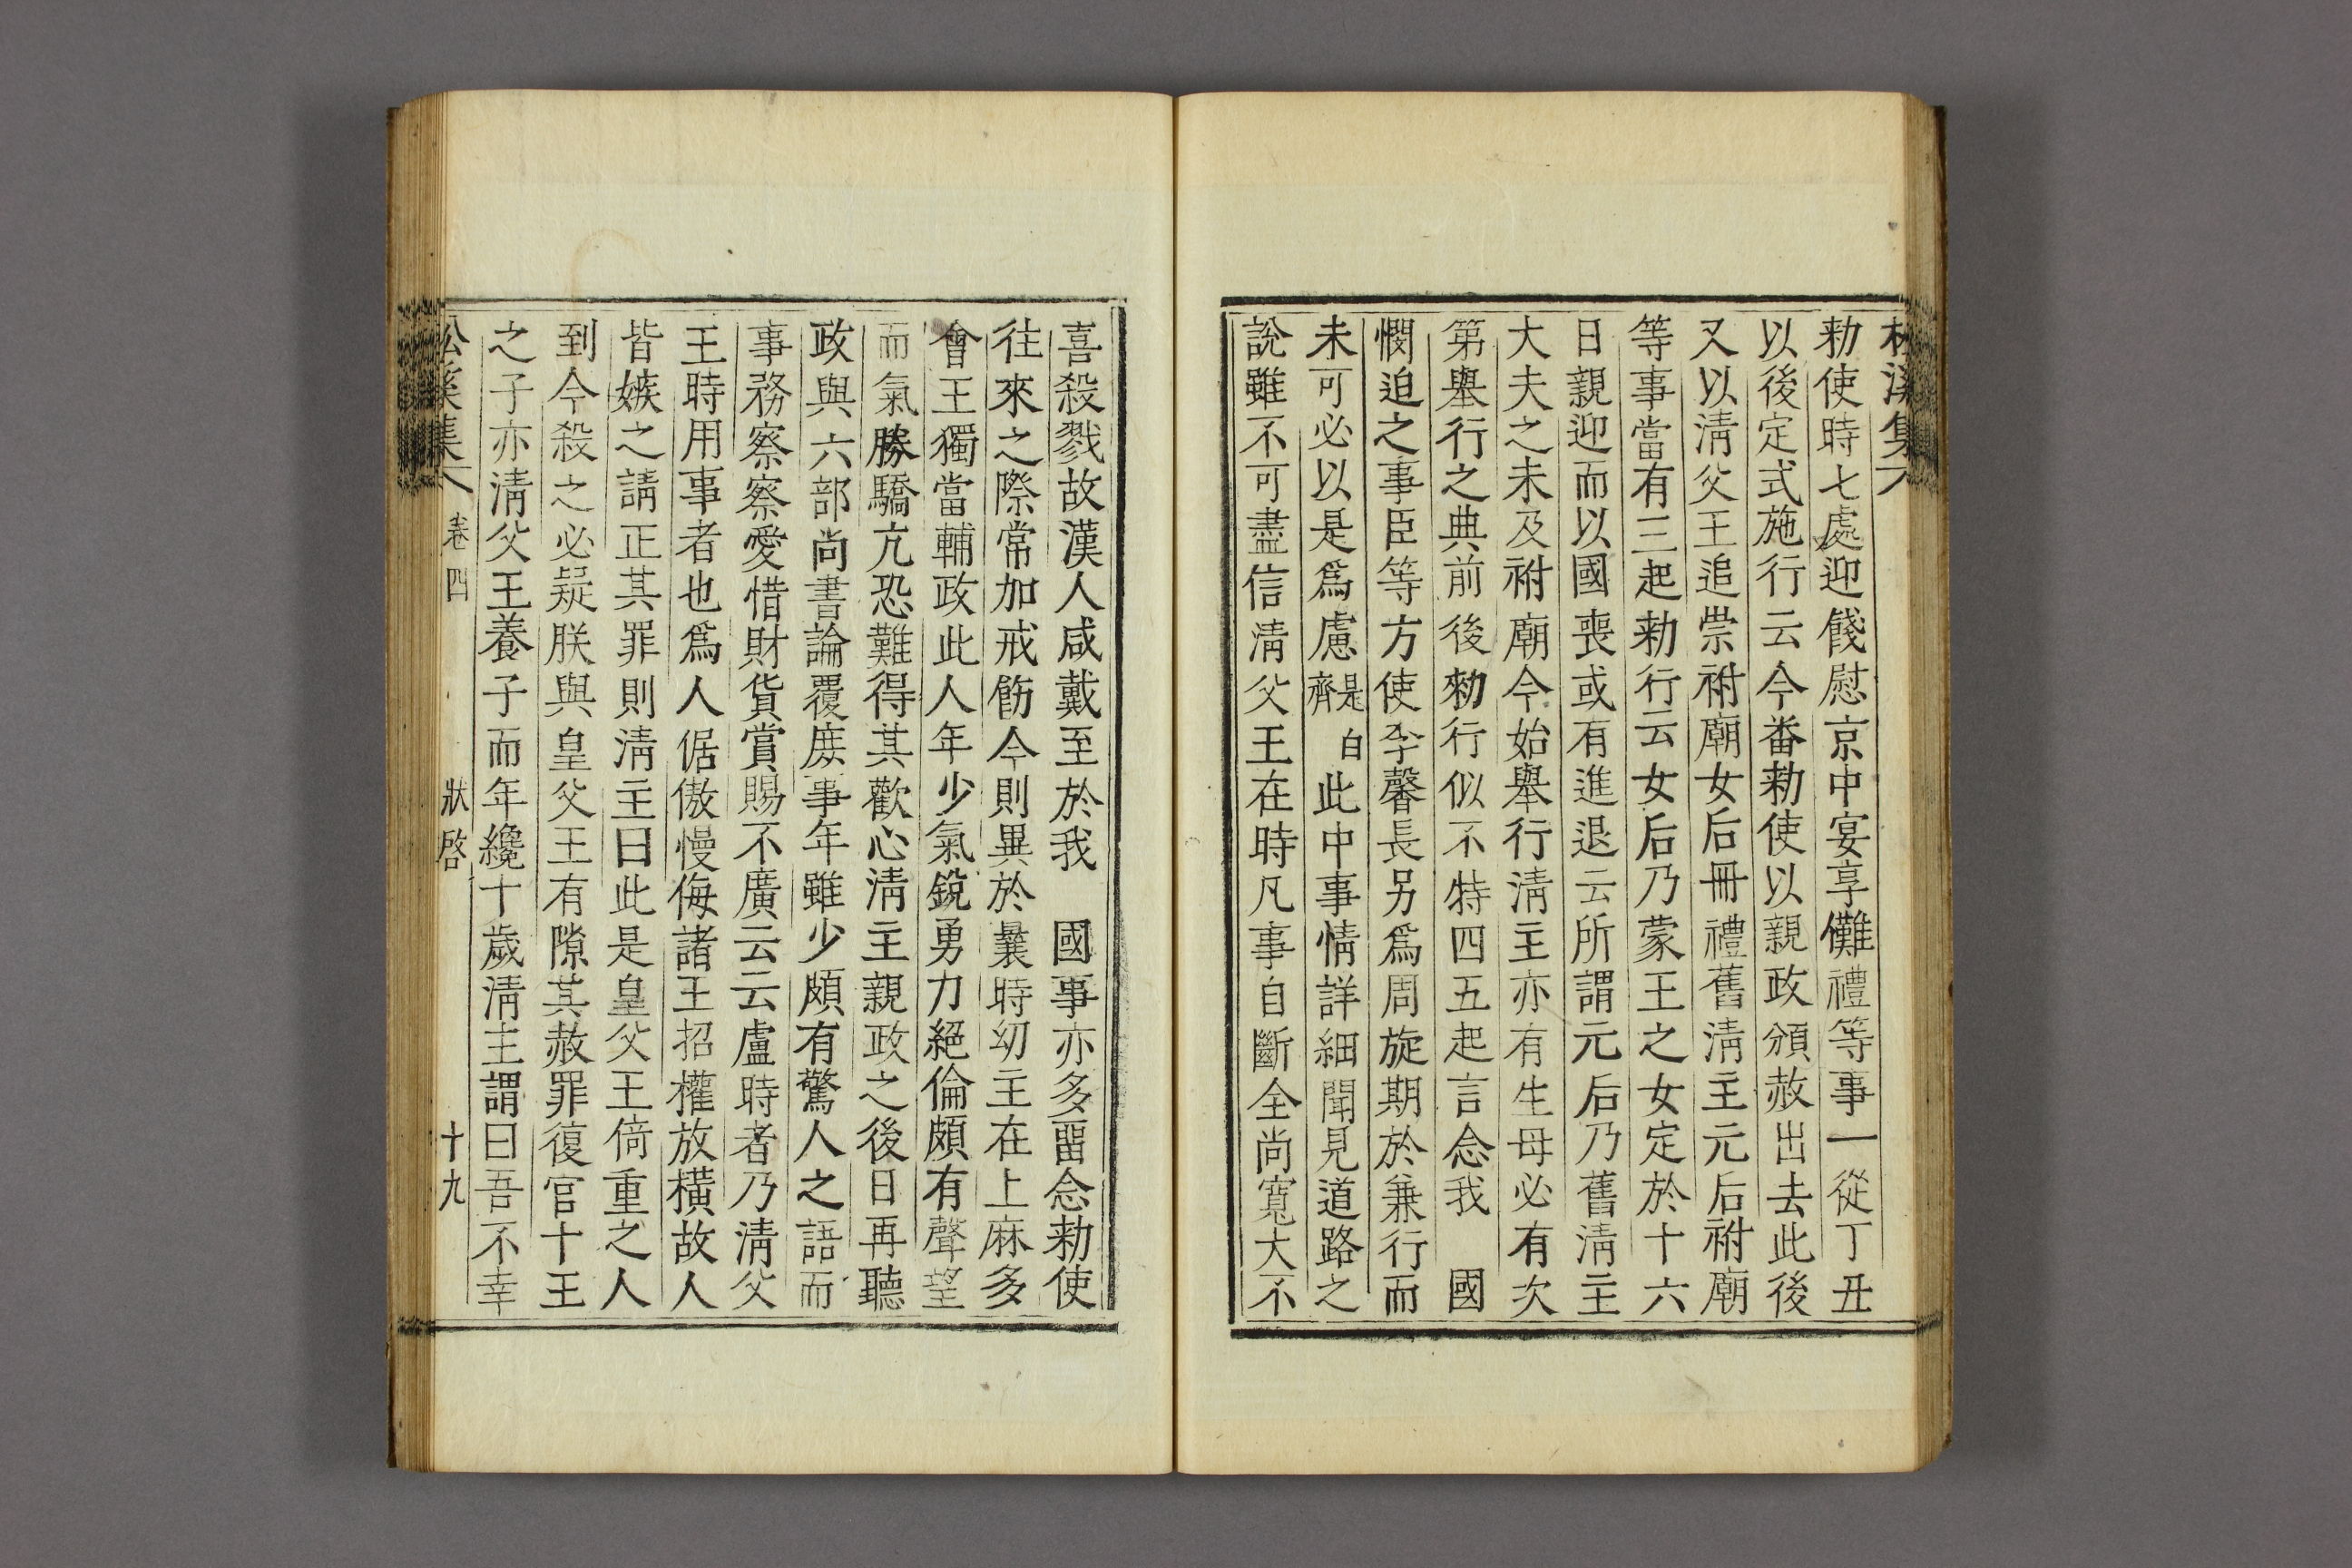 松溪集
勅使時七處迎餞慰京中宴享儺禮等事一從丁丑
以後定式施行云今番勅使以親政頒赦出去此後
又以淸父王追崇祔廟女后冊禮舊淸主元后祔廟
等事當有三起勅行云女后乃蒙王之女定於十六
日親迎而以國喪或有進退云所謂元后乃舊淸主
大夫之未及祔廟今始擧行淸主亦有生母必有次
第擧行之典前後勅行似不特四五起言念我　國
憫迫之事臣等方使李馨長另爲周旋期於兼行而
未可必以是爲慮是白齊此中事情詳細聞見道路之
說雖不可盡信淸父王在時凡事自斷全尙寬大不
喜殺戮故漢人咸戴至於我　國事亦多留念勅使
往來之際常加戒飭今則異於曩時幼主在上麻多
會王獨當輔政此人年少氣銳勇力絕倫頗有聲望
而氣勝驕亢恐難得其歡心淸主親政之後日再聽
政與六部尙書論覆庶事年雖少頗有驚人之語而
事務察察愛惜財貨賞賜不廣云云盧時者乃淸父
王時用事者也爲人倨傲慢侮諸王招權放橫故人
皆嫉之請正其罪則淸主曰此是皇父王倚重之人
到今殺之必疑朕與皇父王有隙其赦罪復官十王
之子亦淸父王養子而年纔十歲淸主謂曰吾不幸
松溪集　卷四　狀啓　十九